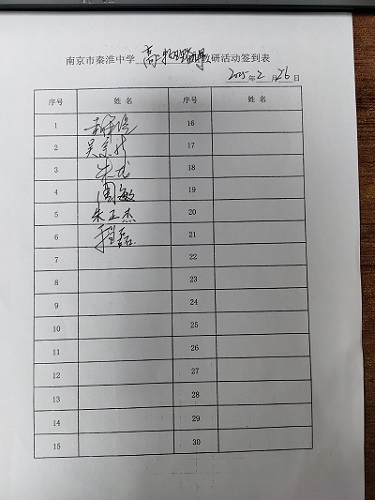 南京市秦淮中学 高 教研活动签到表
2025年2月26日
序号 姓 名 序号 姓 名
1 16
2 吴 17
3 朱 18
4 周敏 19
5 朱正杰 20
6 程磊 21
7 22
8 23
9 24
10 25
11 26
12 27
13 28
14 29
15 30